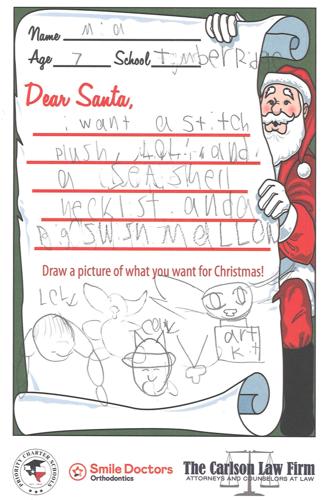 Name Mia
Age 7 School Timber Ridge
Dear Santa,
i want a stitch
plush, and
a seashell
necklst. and a
Big swishmallow
Draw a picture of what you want for Christmas!
art
kit
PRIORITY CHARTER SCHOOLS
Smile Doctors
Orthodontics
The Carlson Law Firm
ATTORNEYS AND COUNSELORS AT LAW